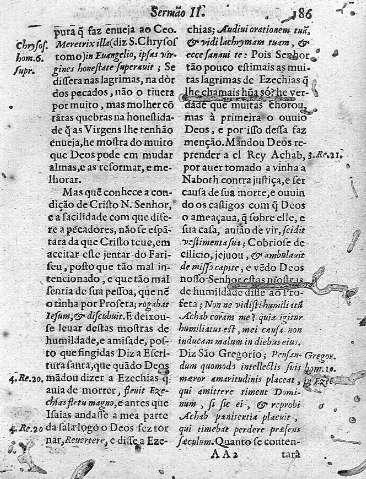 Sermão II.
186
pura q̃ faz enueja ao Ceo.
Meretrix illa (diz S. Chrysos
tomo) in Euangelio, ipsas vir-
gines honestate superauit; Se
differa nas lagrimas, na dòr
dos pecados, não o tiuera
por muito, mas molher cõ
tãras quebras na honestida-
de q̃ as Virgens lhe tenhão
enueja, he mostra do muito
que Deos pode em mudar
almas, e as reformar, e me-
lhorar.
Mas quẽ conhece a con-
dição de Cristo N. Senhor,
e a facilidade com que dife-
re a pecadores, não se espã-
tara da que Cristo teue, em
aceitar este jentar do Fari-
seu, posto que tão mal in-
tencionado, e que tão mal
sentia de sua pessoa, que nẽ
o tinha por Profeta; rogabat
Iesum, & discubuit. E deixou-
se leuar dessas mostras de
humildade, e amisade, pos-
to que fingidas Diz a Escri-
tura santa, que quãdo Deos
mãdou dizer a Ezechias q̃
auia de morrer, fleuit Eze-
chias fletu magno, e antes que
Isaias andasse a mea parte
da sala logo o Deos fez tor-
nar, Reuertere, e disse a Eze-
Chrysos.
hom. 6.
supr.
4. Re. 20.
4. Re. 20.
chias; Audiui orationem tuã,
& vidi lachrymam tuam, &
ecce sanaui te: Pois Senhor
tão pouco estimais as mui-
tas lagrimas de Ezechias q̃
lhe chamais hũa só? he ver-
dade que muitas chorou,
mas à primeira o ouuio
Deos, e por isso dessa faz
menção. Mandou Deos re-
prender a el Rey Achab,
por auer tomado a vinha a
Naboth contra justiça, e ser
causa de sua morte, e ouuin
do os castigos com q̃ Deos
o ameaçaua, q̃ sobre elle, e
sua casa, auião de vir, scidit
vestimenta sua; Cobriose de
cilicio, jejuou, & ambulauit
demisso capite, e vẽdo Deos
nosso Senhor estas mostras
de humildade disse ao Pro-
feta; Non ne vidisti humiliatũ
Achab coram me? quia igitur
humiliatus est, mei causa non
inducam malum in diebus eius.
Diz São Gregorio; Pensan-
dum quomodo intellectis suis
mœror amaritudinis placeat,
qui amittere timent Domi-
num, si sic ei, & reprobi
Achab pœnitentia placuit,
qui timebat perdere præsens
sæculum. Quanto se conten-
3. Re. 21.
Gregor.
hom. 10.
in Ezec
A A 2
tará